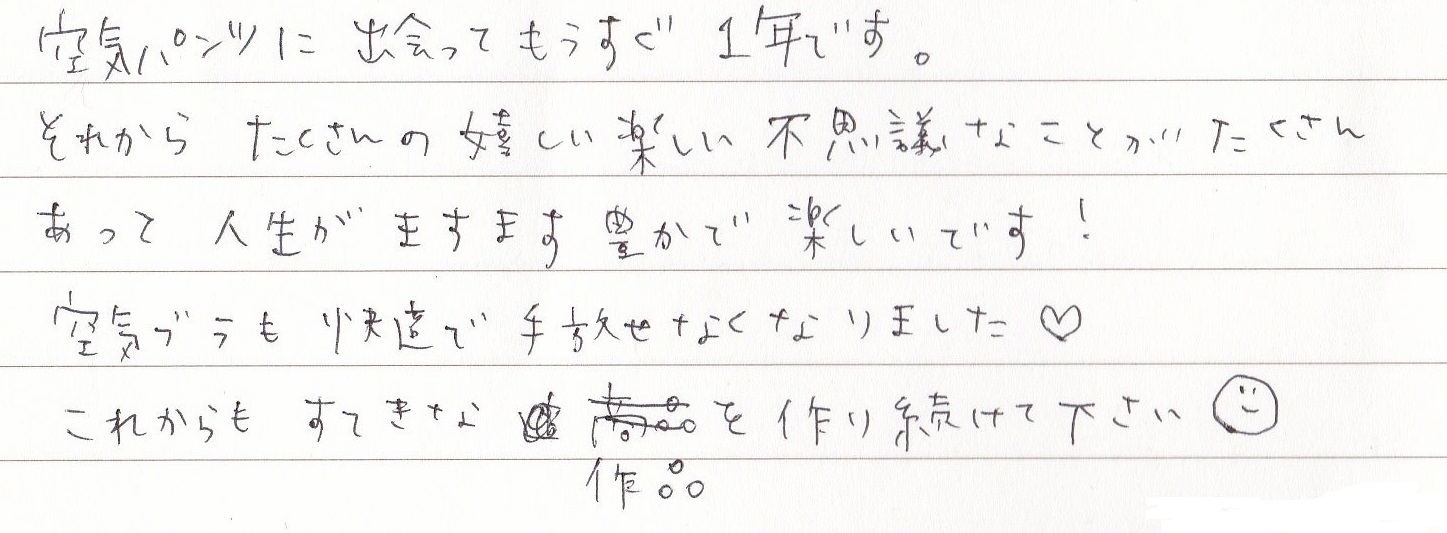 空気パンツに出会ってもうすぐ1年です。
それから たくさんの嬉しい楽しい不思議なことがたくさん
あって 人生がますます豊かで楽しいです!
空気ブラも快適で手放せなくなりました♡
これからも すてきな 商品を作り続けて下さい
作品